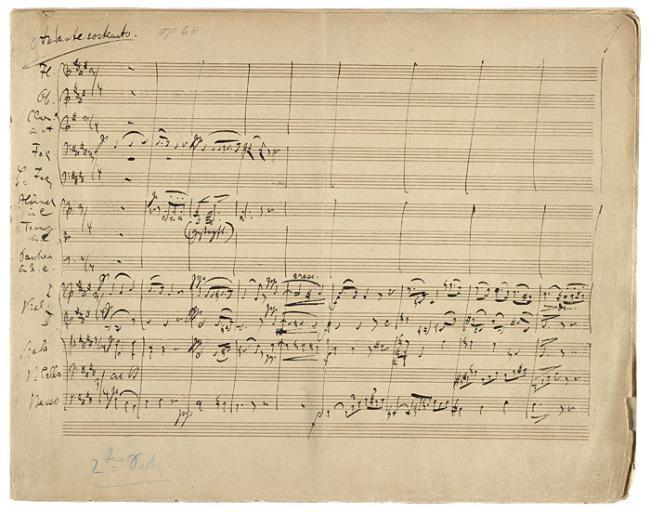 Andante sostenuto. op 68
Fl.
Ob.
Clar.
in A
Fag
C. Fag
Hörner
in E
Tromp
in E
Pauken
in h. e.
I
Viol:
II
(gestopft)
cresc.
Viola
V. Cello
Basso